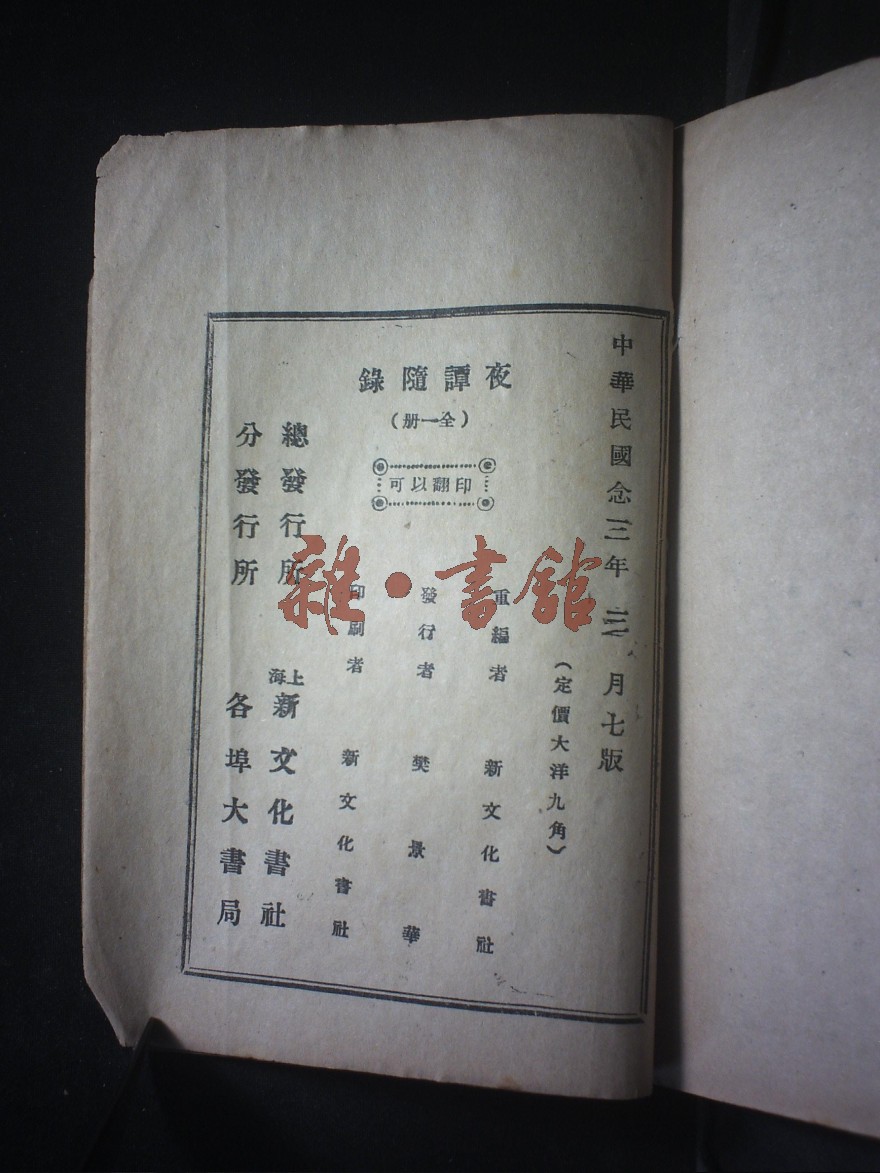 中華民國念三年三月七版
(定價大洋九角)
夜譚隨錄
(全一册)
可以翻印
重編者 新文化書社
發行者 樊景華
印刷者 新文化書社
總發行所 上海新文化書社
分發行所 各埠大書局
雜·書館